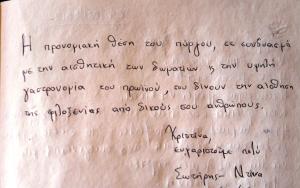 Η προνομιακή θέση του πύργου, σε συνδυασμό
με την αισθητική των δωματίων & την υψηλή
γαστρονομία του πρωινού, του δίνουν την αίσθηση
της φιλοξενίας από δικούς του ανθρώπους.
Χριστίνα,
ευχαριστούμε πολύ
Σωτήρης - Ντίνα